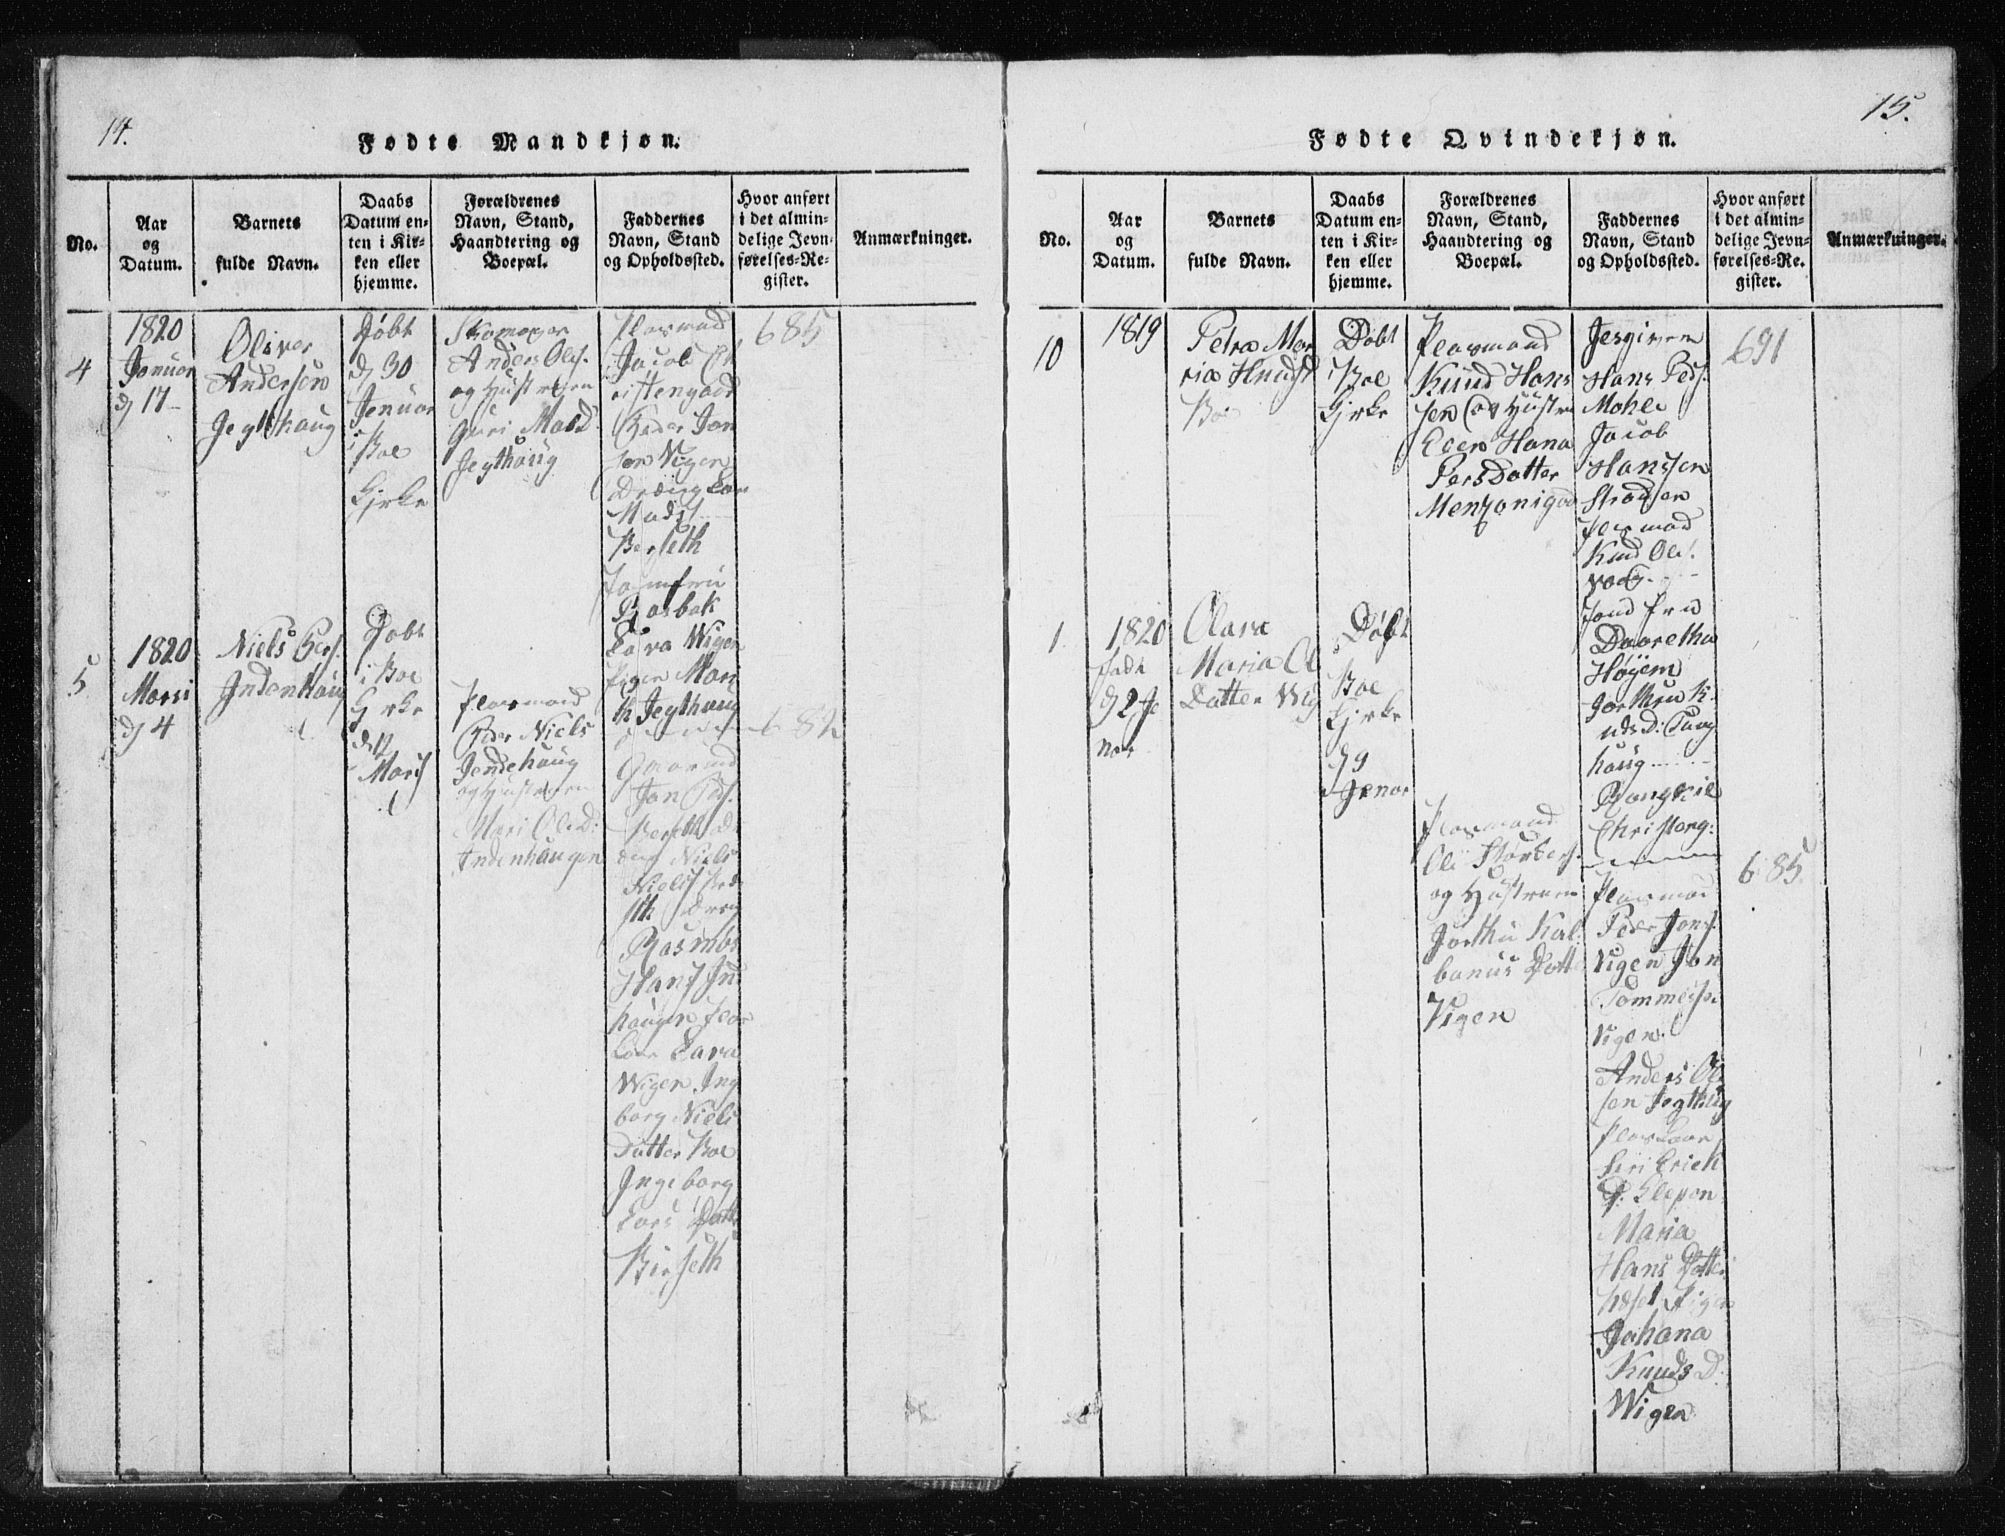 14.
Fødte Mandkjøn.
No.
Aar
og
Datum.
Barnets
fulde Navn.
Daabs
Datum en-
ten i Kir-
ken eller
hjemme.
Forældrenes
Navn, Stand,
Haandtering og
Boepæl.
Faddernes
Navn, Stand
og Opholdssted.
Hvor anført
i det almin-
delige Jevn-
førelses-Re-
gister.
Anmærkninger.
4
1820
Januar
d 17
Oliver
Andersen
Jegthaug
Døbt
d 30
Januar
i Boe
Kirke
Anders Ols.
og Hustruen
Guri MadsD
Jegthaug
Plasmand
Jacob Ch
ristengard
Peder Jon
sen Vigen
Dræng Lar
Mads
Berseth
Jomfru
Rosbak
Lava Wigen
Pigen Mar
it Jegthaug
685
5
1820
Marsi
d 4
Niels Pers.
Indenhaug
Døbt
i Boe
Kirke
d 12
Mars
Plasmand
Peder Niels
Jendehaug
og Hustruen
Mari OlsD:
Indenhaugen
Gaarmd
Jon Peds.
Berseth D
deng Niels
Niels
Rasmbs
Hans In
haugen
Lava
Wigen Ing
borg Niels
Datter Boe
Ingeborg
Lars Datt
Berseth
682
15.
Fødte Qvindekjøn.
No.
Aar
og
Datum.
Barnets
fulde Navn.
Daabs
Datum en-
ten i Kir-
ken eller
hjemme.
Forældrenes
Navn, Stand,
Haandtering og
Boepæl.
Faddernes
Navn, Stand
og Opholdssted.
Hvor anført
i det almin-
delige Jevn-
førelses-Re-
gister.
Anmærkninger.
10
1819
Petra Mar
ria Knuds
Boe
Døbt
i Boe
Kirke
Plasmand
Knud Hans
sen og Hustru
Elen Hana
PersDatter
Hans Peds.
Mohle
Jacob
Hanssen
Plasmand
Knud Ols.
Daaretha
Høyem
Jorthru K
udsD: Tung
haug
Rangnil
691
1
1820
født
d 2 Ja
nar
Olava
Maria Ol
Datter Wig
Døbt
Boe
Kirke
d 9
Janar
Plasmand
Ole
og Hustruen
Jorthu Kol
banus Datt
Vigen
Plasmand
Peder Jons.
Vigen Jon
Tommeson
Vigen.
Anders Ol
sen Jegthaug
Siri Erich
D:
Maria
Hans Datter
Johana
Knuds D.
Wigen
685